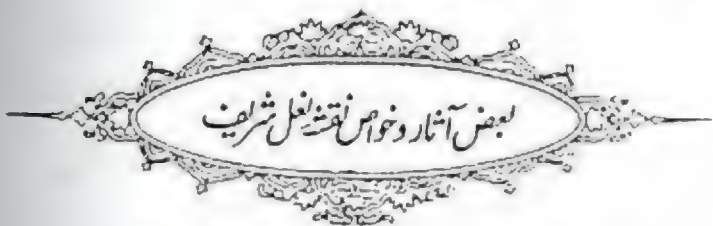 بعض آثار وخواص نقشہ نعل شریف